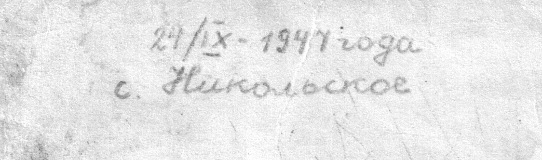 24/IX - 1947 года
с. Никольское